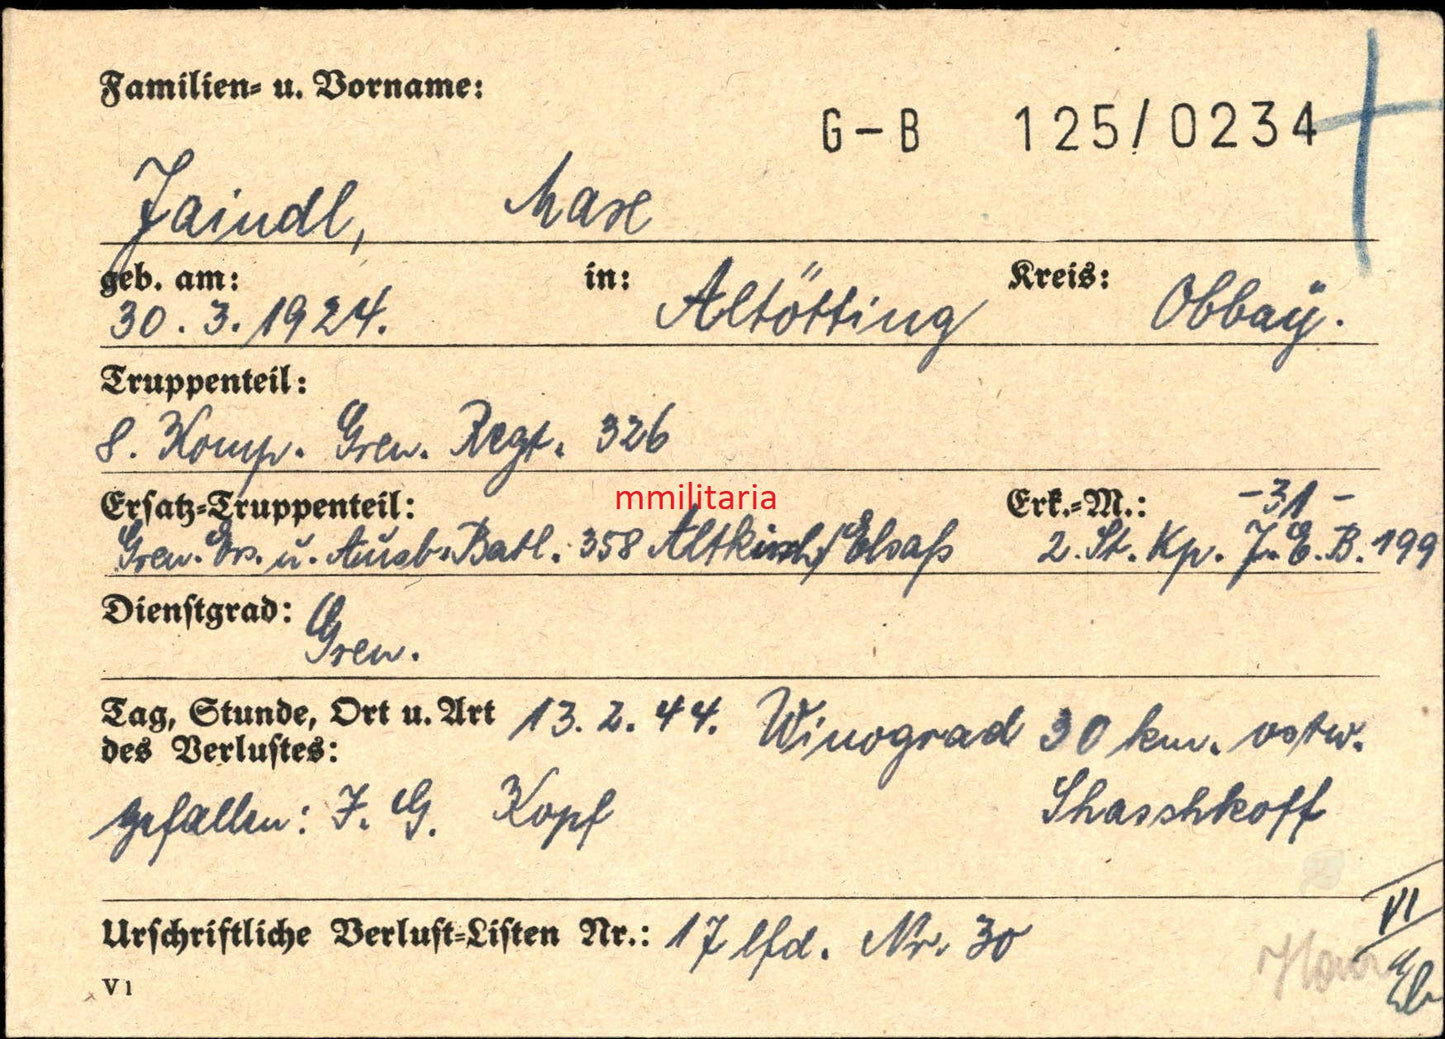 Familien- u. Vorname:
G-B 125/0234
Jaindl, Max
geb. am: in: Kreis:
30.3.1924. Altötting Obbay.
Truppenteil:
8. Komp. Gren. Regt. 326
mmilitaria
Ersatz-Truppenteil: Erk.-M.: -31-
Gren. Ers. u. Ausb. Batl. 358 Altkirch/Elsaß 2. St. Kp. J. E. B. 199
Dienstgrad:
Gren.
Tag, Stunde, Ort u. Art 13.2.44. Winograd 30 km. ostw.
des Verlustes:
gefallen: J. G. Kopf Shasshkoff
VI
Urschriftliche Verlust-Listen Nr.: 17 lfd. Nr. 30
V1